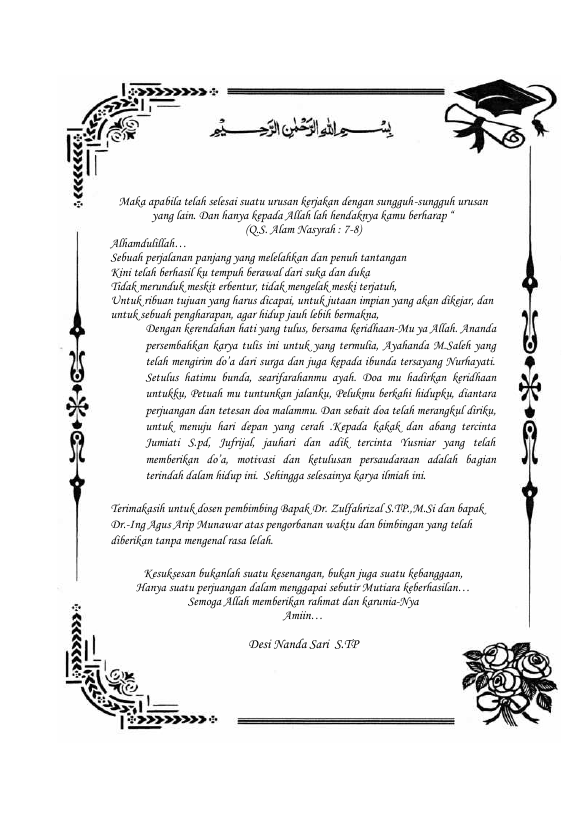 بِسْمِ اللهِ الرَّحْمٰنِ الرَّحِيْمِ
Maka apabila telah selesai suatu urusan kerjakan dengan sungguh-sungguh urusan
yang lain. Dan hanya kepada Allah lah hendaknya kamu berharap “
(Q.S. Alam Nasyrah : 7-8)
Alhamdulillah…
Sebuah perjalanan panjang yang melelahkan dan penuh tantangan
Kini telah berhasil ku tempuh berawal dari suka dan duka
Tidak merunduk meskit erbentur, tidak mengelak meski terjatuh,
Untuk ribuan tujuan yang harus dicapai, untuk jutaan impian yang akan dikejar, dan
untuk sebuah pengharapan, agar hidup jauh lebih bermakna,
Dengan kerendahan hati yang tulus, bersama keridhaan-Mu ya Allah. Ananda
persembahkan karya tulis ini untuk yang termulia, Ayahanda M.Saleh yang
telah mengirim do’a dari surga dan juga kepada ibunda tersayang Nurhayati.
Setulus hatimu bunda, searifarahanmu ayah. Doa mu hadirkan keridhaan
untukku, Petuah mu tuntunkan jalanku, Pelukmu berkahi hidupku, diantara
perjuangan dan tetesan doa malammu. Dan sebait doa telah merangkul diriku,
untuk menuju hari depan yang cerah .Kepada kakak dan abang tercinta
Jumiati S.pd, Jufrijal, jauhari dan adik tercinta Yusniar yang telah
memberikan do’a, motivasi dan ketulusan persaudaraan adalah bagian
terindah dalam hidup ini.  Sehingga selesainya karya ilmiah ini.
Terimakasih untuk dosen pembimbing Bapak Dr. Zulfahrizal S.TP.,M.Si dan bapak
Dr.-Ing Agus Arip Munawar atas pengorbanan waktu dan bimbingan yang telah
diberikan tanpa mengenal rasa lelah.
Kesuksesan bukanlah suatu kesenangan, bukan juga suatu kebanggaan,
Hanya suatu perjuangan dalam menggapai sebutir Mutiara keberhasilan…
Semoga Allah memberikan rahmat dan karunia-Nya
Amiin…
Desi Nanda Sari  S.TP